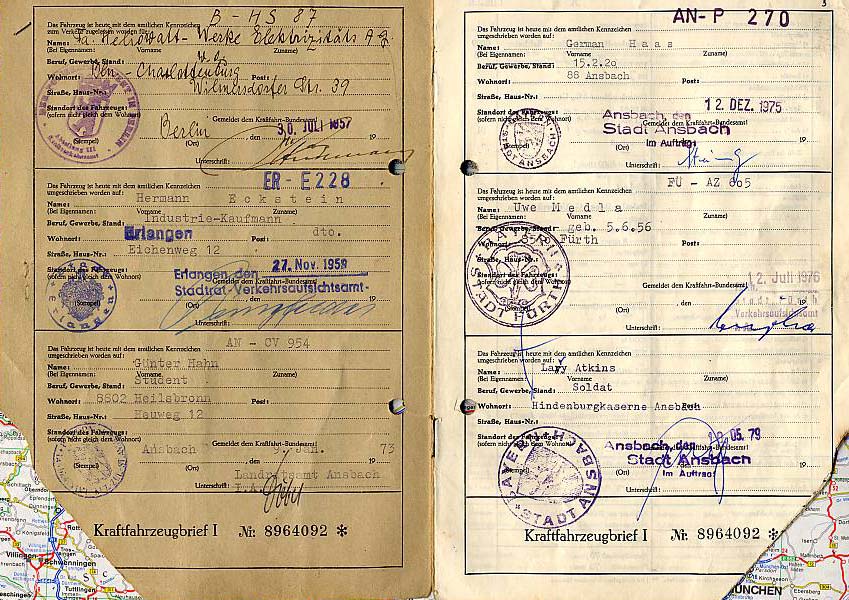 B - HS 87
Das Fahrzeug ist heute mit dem amtlichen Kennzeichen
zum Verkehr zugelassen worden für:
Name: Fa. Heliowatt-Werke Elektrizitäts A.G.
(Bei Eigennamen: Vorname Zuname)
Beruf, Gewerbe, Stand:
Wohnort: Bln - Charlottenburg Post:
Straße, Haus-Nr.: Wilmersdorfer Str. 39
Standort des Fahrzeugs:
(sofern nicht gleich dem Wohnort)
Gemeldet dem Kraftfahrt-Bundesamt!
Berlin, den 30. JULI 1957 19
(Stempel) (Ort)
Unterschrift:
ER - E 228
Das Fahrzeug ist heute mit dem amtlichen Kennzeichen
umgeschrieben worden auf:
Name: Hermann Eckstein
(Bei Eigennamen: Vorname Zuname)
Beruf, Gewerbe, Stand: Industrie-Kaufmann
Wohnort: Erlangen Post: dto.
Straße, Haus-Nr.: Eichenweg 12
Standort des Fahrzeugs:
(sofern nicht gleich dem Wohnort)
27. Nov. 1959
Erlangen, den 19
Gemeldet dem Kraftfahrt-Bundesamt!
Stadtrat Verkehrsaufsichtsamt-
(Stempel)
Erlangen
Unterschrift:
AN - CV 954
Das Fahrzeug ist heute mit dem amtlichen Kennzeichen
umgeschrieben worden auf:
Name: Günter Hahn
(Bei Eigennamen: Vorname Zuname)
Beruf, Gewerbe, Stand: Student
Wohnort: 8802 Heilsbronn Post:
Straße, Haus-Nr.: Hauweg 12
Standort des Fahrzeugs:
(sofern nicht gleich dem Wohnort)
Gemeldet dem Kraftfahrt-Bundesamt!
Ansbach, den 9. Jan. 1973
(Stempel) (Ort)
Landratsamt Ansbach
Unterschrift: I.A.
Kraftfahrzeugbrief I Nr. 8964092 *
3
AN-P 270
Das Fahrzeug ist heute mit dem amtlichen Kennzeichen
umgeschrieben worden auf:
Name: German Haas
(Bei Eigennamen: Vorname Zuname)
Beruf, Gewerbe, Stand: 15.2.20
Wohnort: 88 Ansbach Post:
Straße, Haus-Nr.:
Standort des Fahrzeugs:
(sofern nicht gleich dem Wohnort)
12. DEZ. 1975
Gemeldet dem Kraftfahrt-Bundesamt!
Ansbach, den 19
Stadt Ansbach
Im Auftrag
(Stempel) (Ort)
Unterschrift:
FÜ - AZ 665
Das Fahrzeug ist heute mit dem amtlichen Kennzeichen
umgeschrieben worden auf:
Name: Uwe Medla
(Bei Eigennamen: Vorname Zuname)
Beruf, Gewerbe, Stand: geb. 5.6.56
Wohnort: 8510 Fürth Post:
Straße, Haus-Nr.:
Standort des Fahrzeugs:
(sofern nicht gleich dem Wohnort)
Gemeldet dem Kraftfahrt-Bundesamt!
12. Juli 1976
, den 19
Verkehrsaufsichtsamt
(Stempel) (Ort)
BAYERN STADT FÜRTH
Unterschrift:
Das Fahrzeug ist heute mit dem amtlichen Kennzeichen
umgeschrieben worden auf:
Name: Lary Atkins
(Bei Eigennamen: Vorname Zuname)
Beruf, Gewerbe, Stand: Soldat
Wohnort: Hindenburgkaserne Ansbach Post:
Straße, Haus-Nr.:
Standort des Fahrzeugs:
(sofern nicht gleich dem Wohnort)
05. 79
Gemeldet dem Kraftfahrt-Bundesamt!
Ansbach, den 19
Stadt Ansbach
Im Auftrag
(Stempel) (Ort)
BAYERN STADT ANSBACH
Unterschrift:
Kraftfahrzeugbrief I Nr. 8964092 *
Villingen
Schwenningen
Tuttlingen
MÜNCHEN
Ebersberg